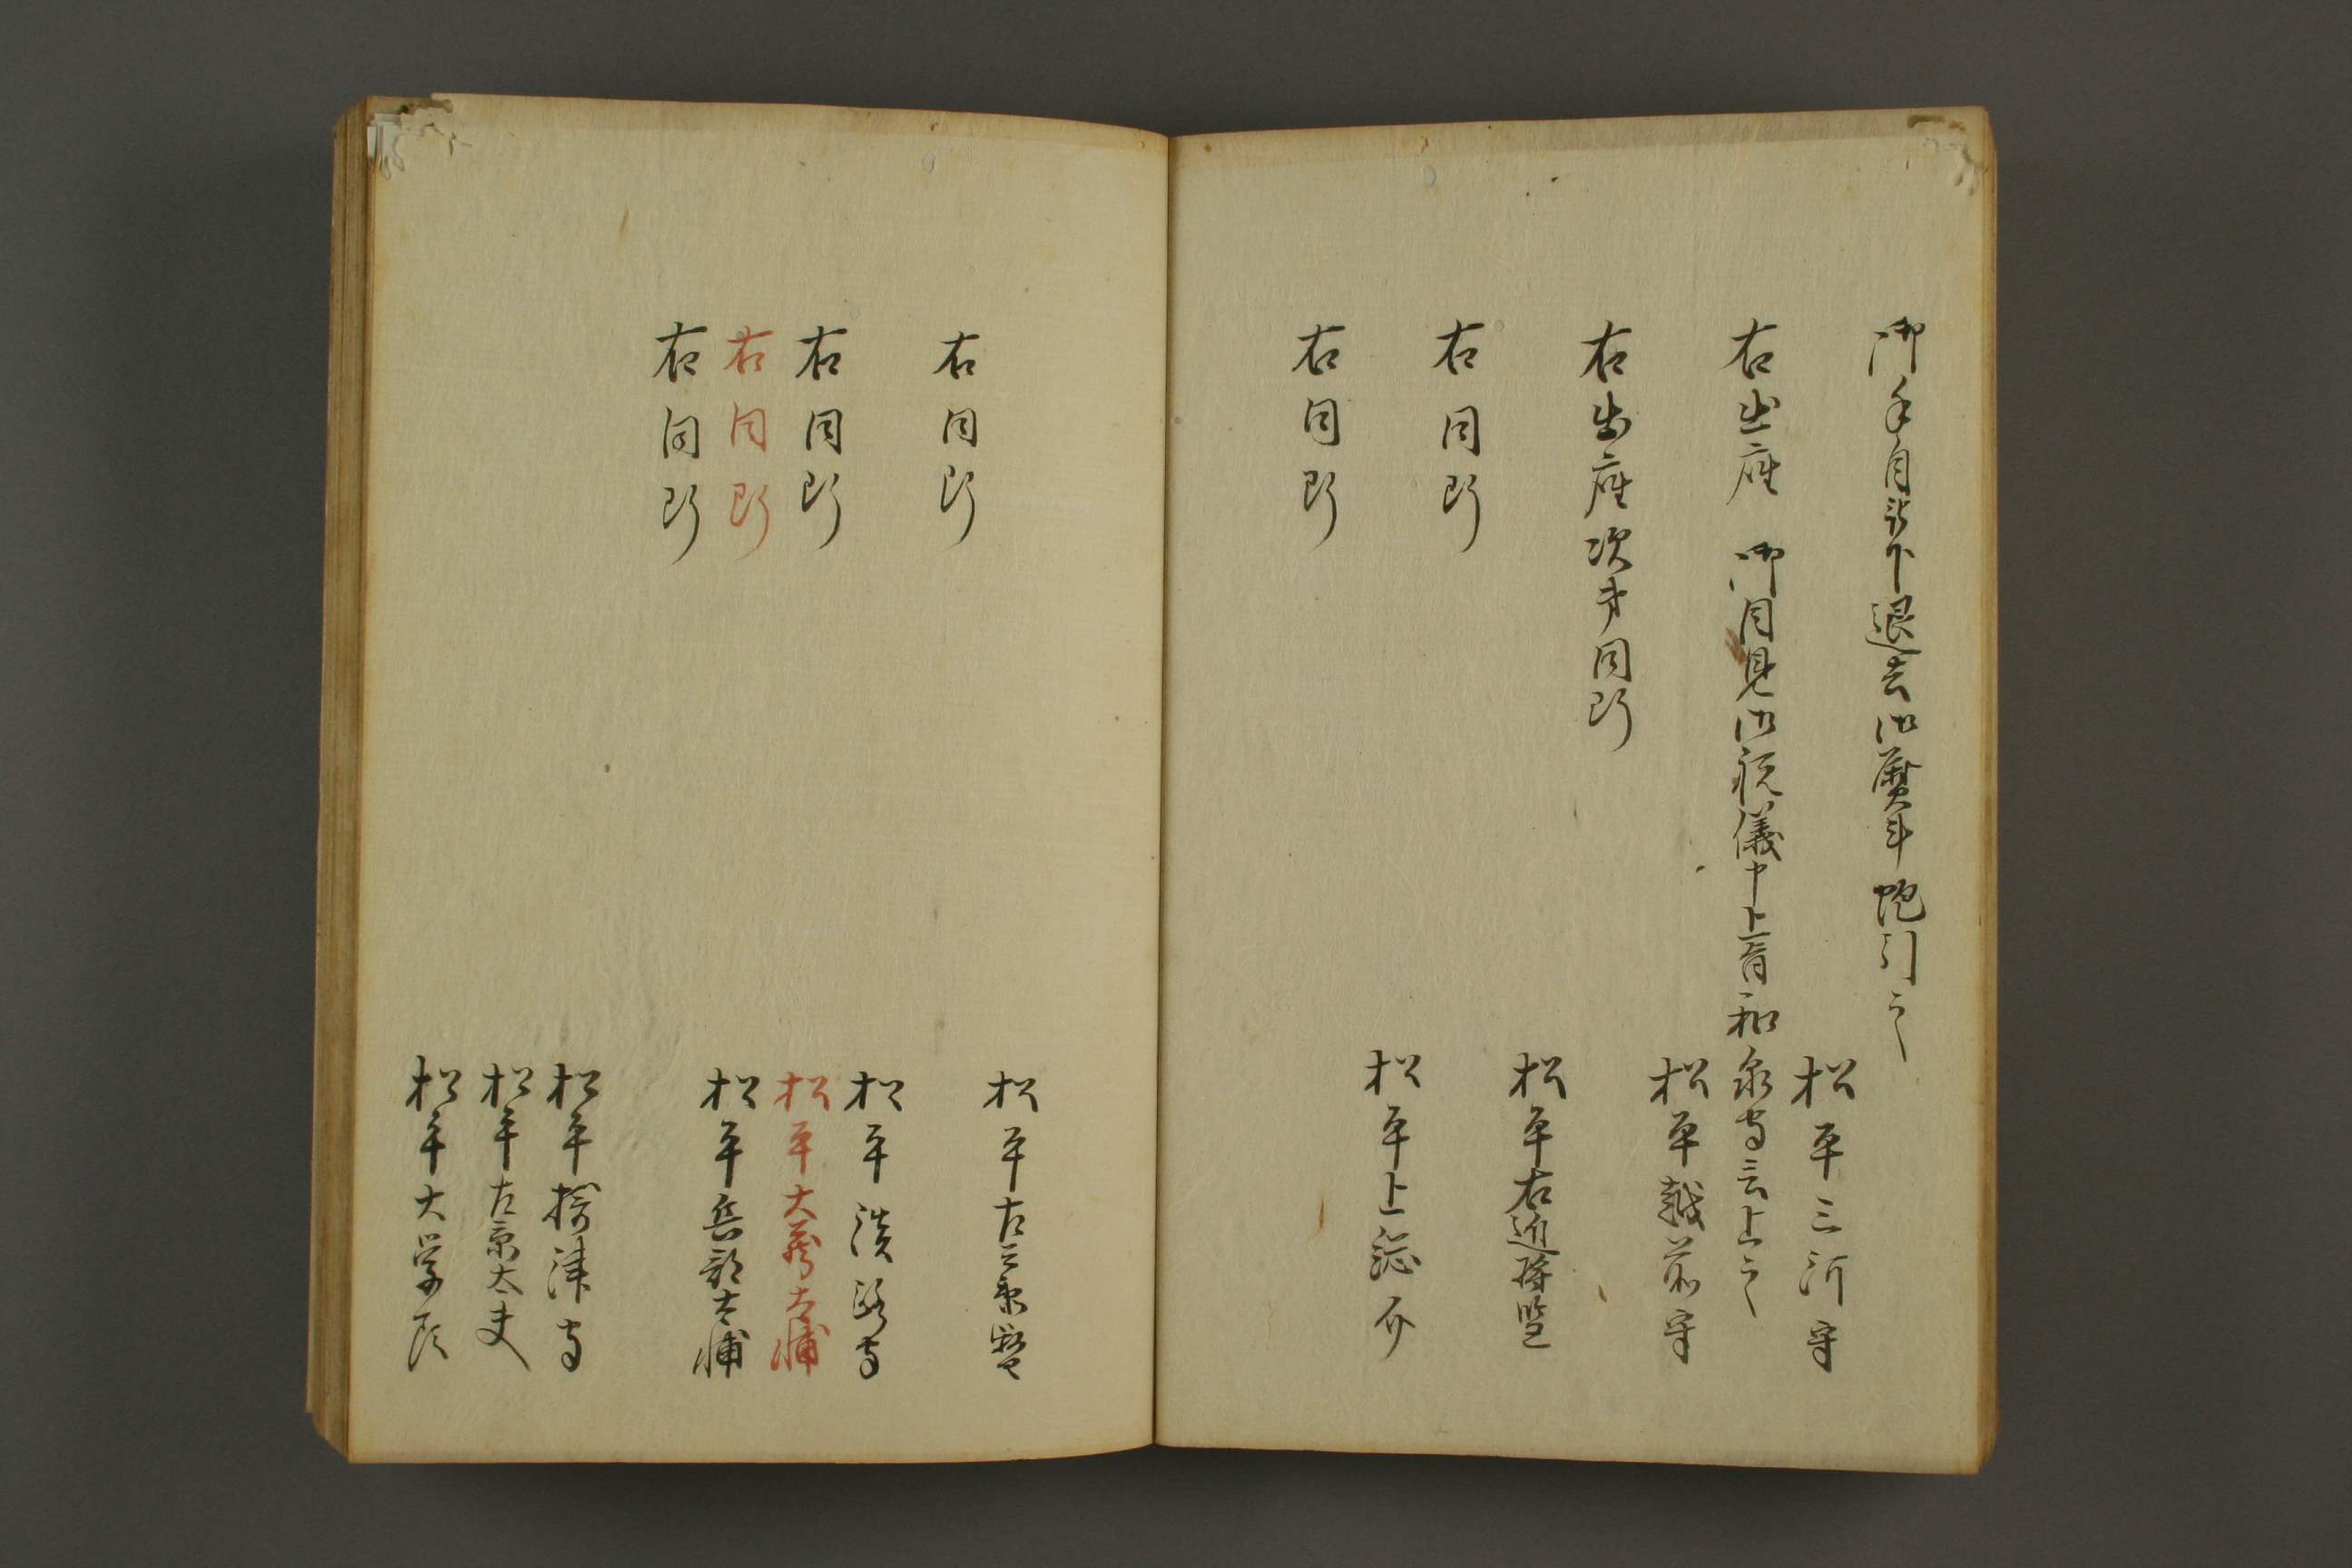 御手自被下退去御熨斗蚫引之
松平三河守
右出座　御目見御祝儀申上旨和泉守言上之
松平越前守
右出座次第同断
松平右近将監
右同断
松平上総介
右同断
松平左兵衛督
右同断
松平淡路守
右同断
松平大蔵大輔
右同断
松平兵部大輔
右同断
松平摂津守
松平左京太夫
松平大学頭